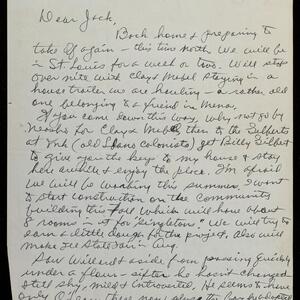 Dear Jack,
Back home & preparing to
take off again - this time north. We will be
in St Louis for a week or two. Will stop
over nite with Clay & Mabel staying in a
house trailer we are hauling - a rather old
one belonging to a friend in Mena.
If you come down this way, why not go by
Neosho for Clay & Mabel then to the Gilberts
at York (old Llano Colonists) get Billy Gilbert
to give you the keys to my house & stay
here awhile & enjoy the place. I'm afraid
we will be working this summer. I want
to start construction on the Community
building this fall which will have about
8 rooms in it for "singletons". We will try to
earn a little dough for the project. Also will
make Ill State Fair in Aug.
Saw Willard aside from passing quickly
under a flour-sifter he hasn't changed
still shy, mild & introverted. He seems to have
only